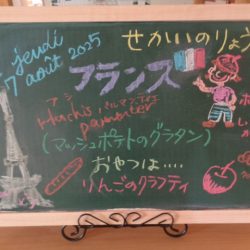 jeudi
7 août 2025
せかいのりょう
フランス
アシ パルマンティエ
Hachis parmentier
(マッシュポテトのグラタン)
おやつは‥‥
りんごのクラフティ